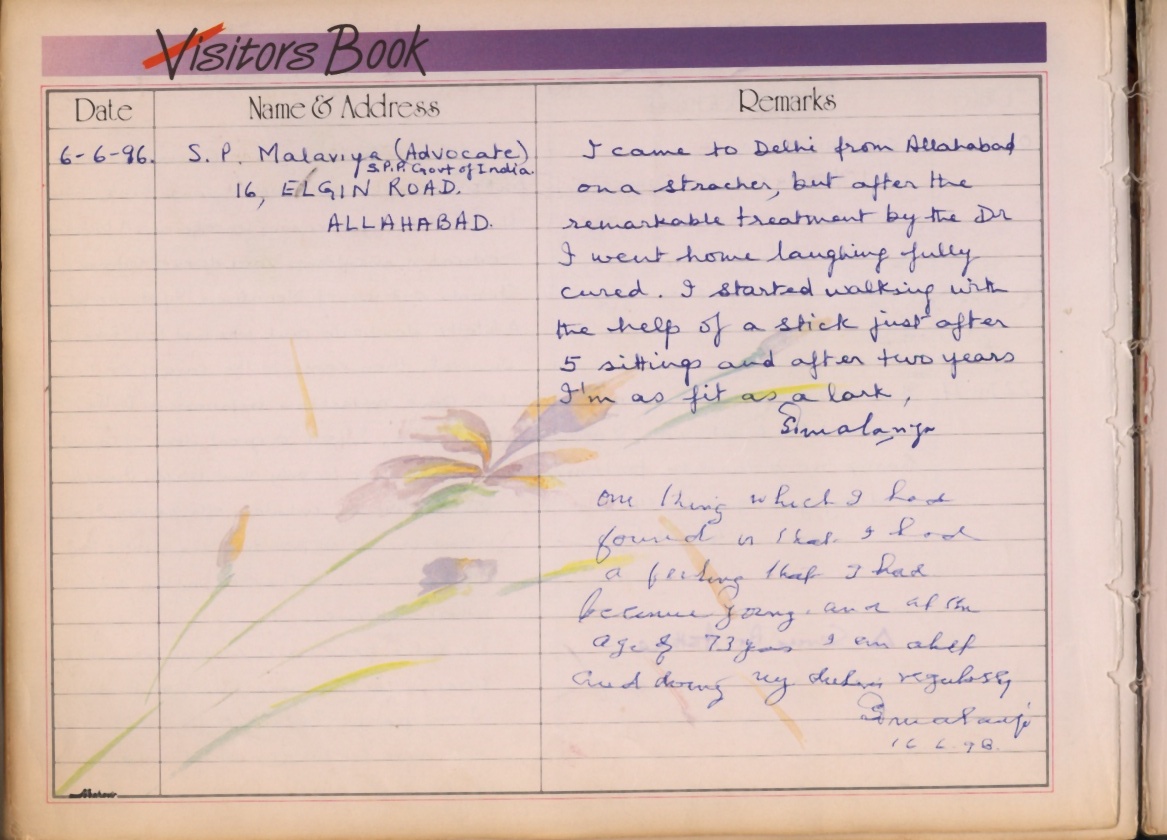 Visitors Book
Date Name & Address Remarks
6-6-96. S. P. Malaviya (Advocate)
S.P.P. Govt of India.
16, ELGIN ROAD.
ALLAHABAD.
I came to Delhi from Allahabad
on a stracher, but after the
remarkable treatment by the Dr
I went home laughing fully
cured. I started walking with
the help of a stick just after
5 sittings and after two years
I'm as fit as a lark,
one thing which I had
found is that I had
a feeling that I had
become young and at the
age of 73 yrs I am
and doing my duties regularly